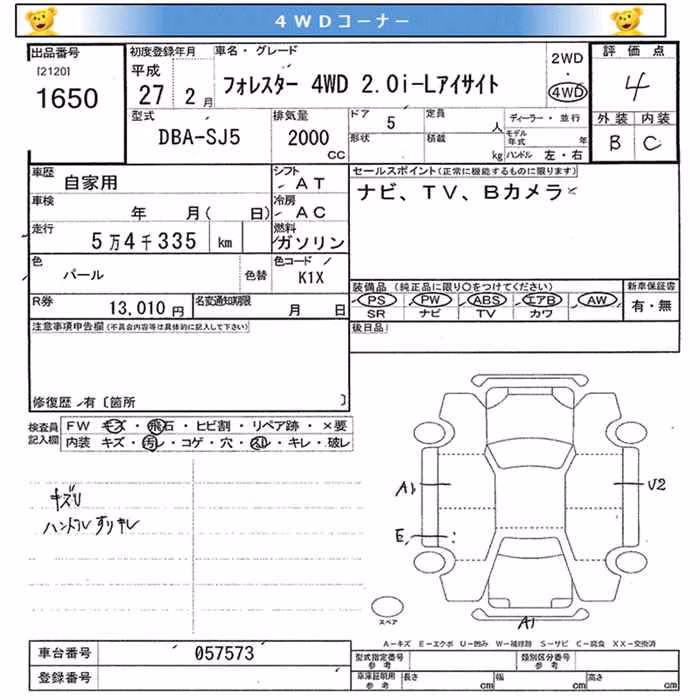 4WDコーナー
出品番号
[2120]
1650
初度登録年月
平成
27 2月
車名・グレード
フォレスター 4WD 2.0i-Lアイサイト
2WD
・
4WD
評価点
4
外装 内装
B C
型式
DBA-SJ5
排気量
2000
CC
ドア 5
形状
定員 人
積載 kg
ディーラー・並行
モデル年式 年
ハンドル 左・右
車歴
自家用
シフト
AT
車検
年 月( 日)
冷房
AC
走行
5万4千335 km
燃料
ガソリン
色
パール
色替
色コード
K1X
R券 13,010円
名変通知期限 月 日
セールスポイント(正常に機能するものに限ります)
ナビ、TV、Bカメラ
装備品 (純正品に限り○をつけてください)
PS PW ABS エアB AW
SR ナビ TV カワ
新車保証書
有・無
後日品
注意事項申告欄(不具合内容等は具体的に記入して下さい)
修復歴・有〔箇所 〕
検査員
記入欄
FW キズ・飛石・ヒビ割・リペア跡・×要
内装 キズ・汚レ・コゲ・穴・スレ・キレ・破レ
キズU
ハンドルすりキレ
A1
U2
E
A1
スペア
A-キズ E-エクボ U-凹み W-補修跡 S-サビ C-腐食 XX-交換済
車台番号 057573
登録番号
型式指定番号
参考
類別区分番号
参考
車庫証明用
参考
長さ cm
幅 cm
高さ cm